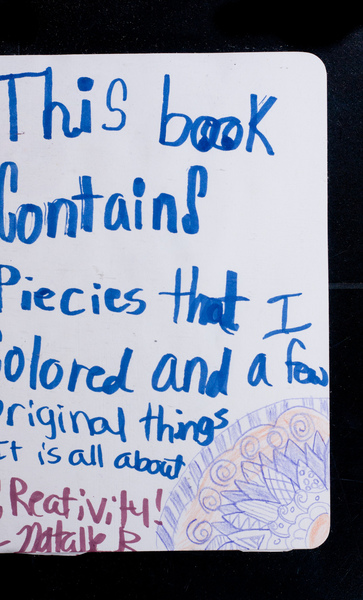 This book
Contains
Piecies that I
Colored and a few
original things
It is all about
Creativity!
- Natalie R